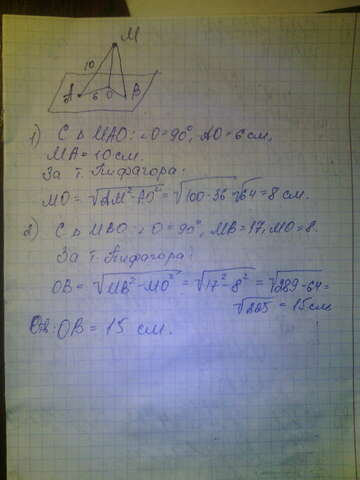 M
10
A 6 O B
1) С Δ MAO: ∠O=90°, AO=6 см,
MA=10 см.
За т. Пифагора:
MO=√AM²-AO²=√100-36=√64=8 см.
2) С Δ MBO ∠O=90°, MB=17, MO=8.
За т. Пифагора:
OB=√MB²-MO²=√17²-8²=√289-64=
√225=15см
Отв: OB=15 см.